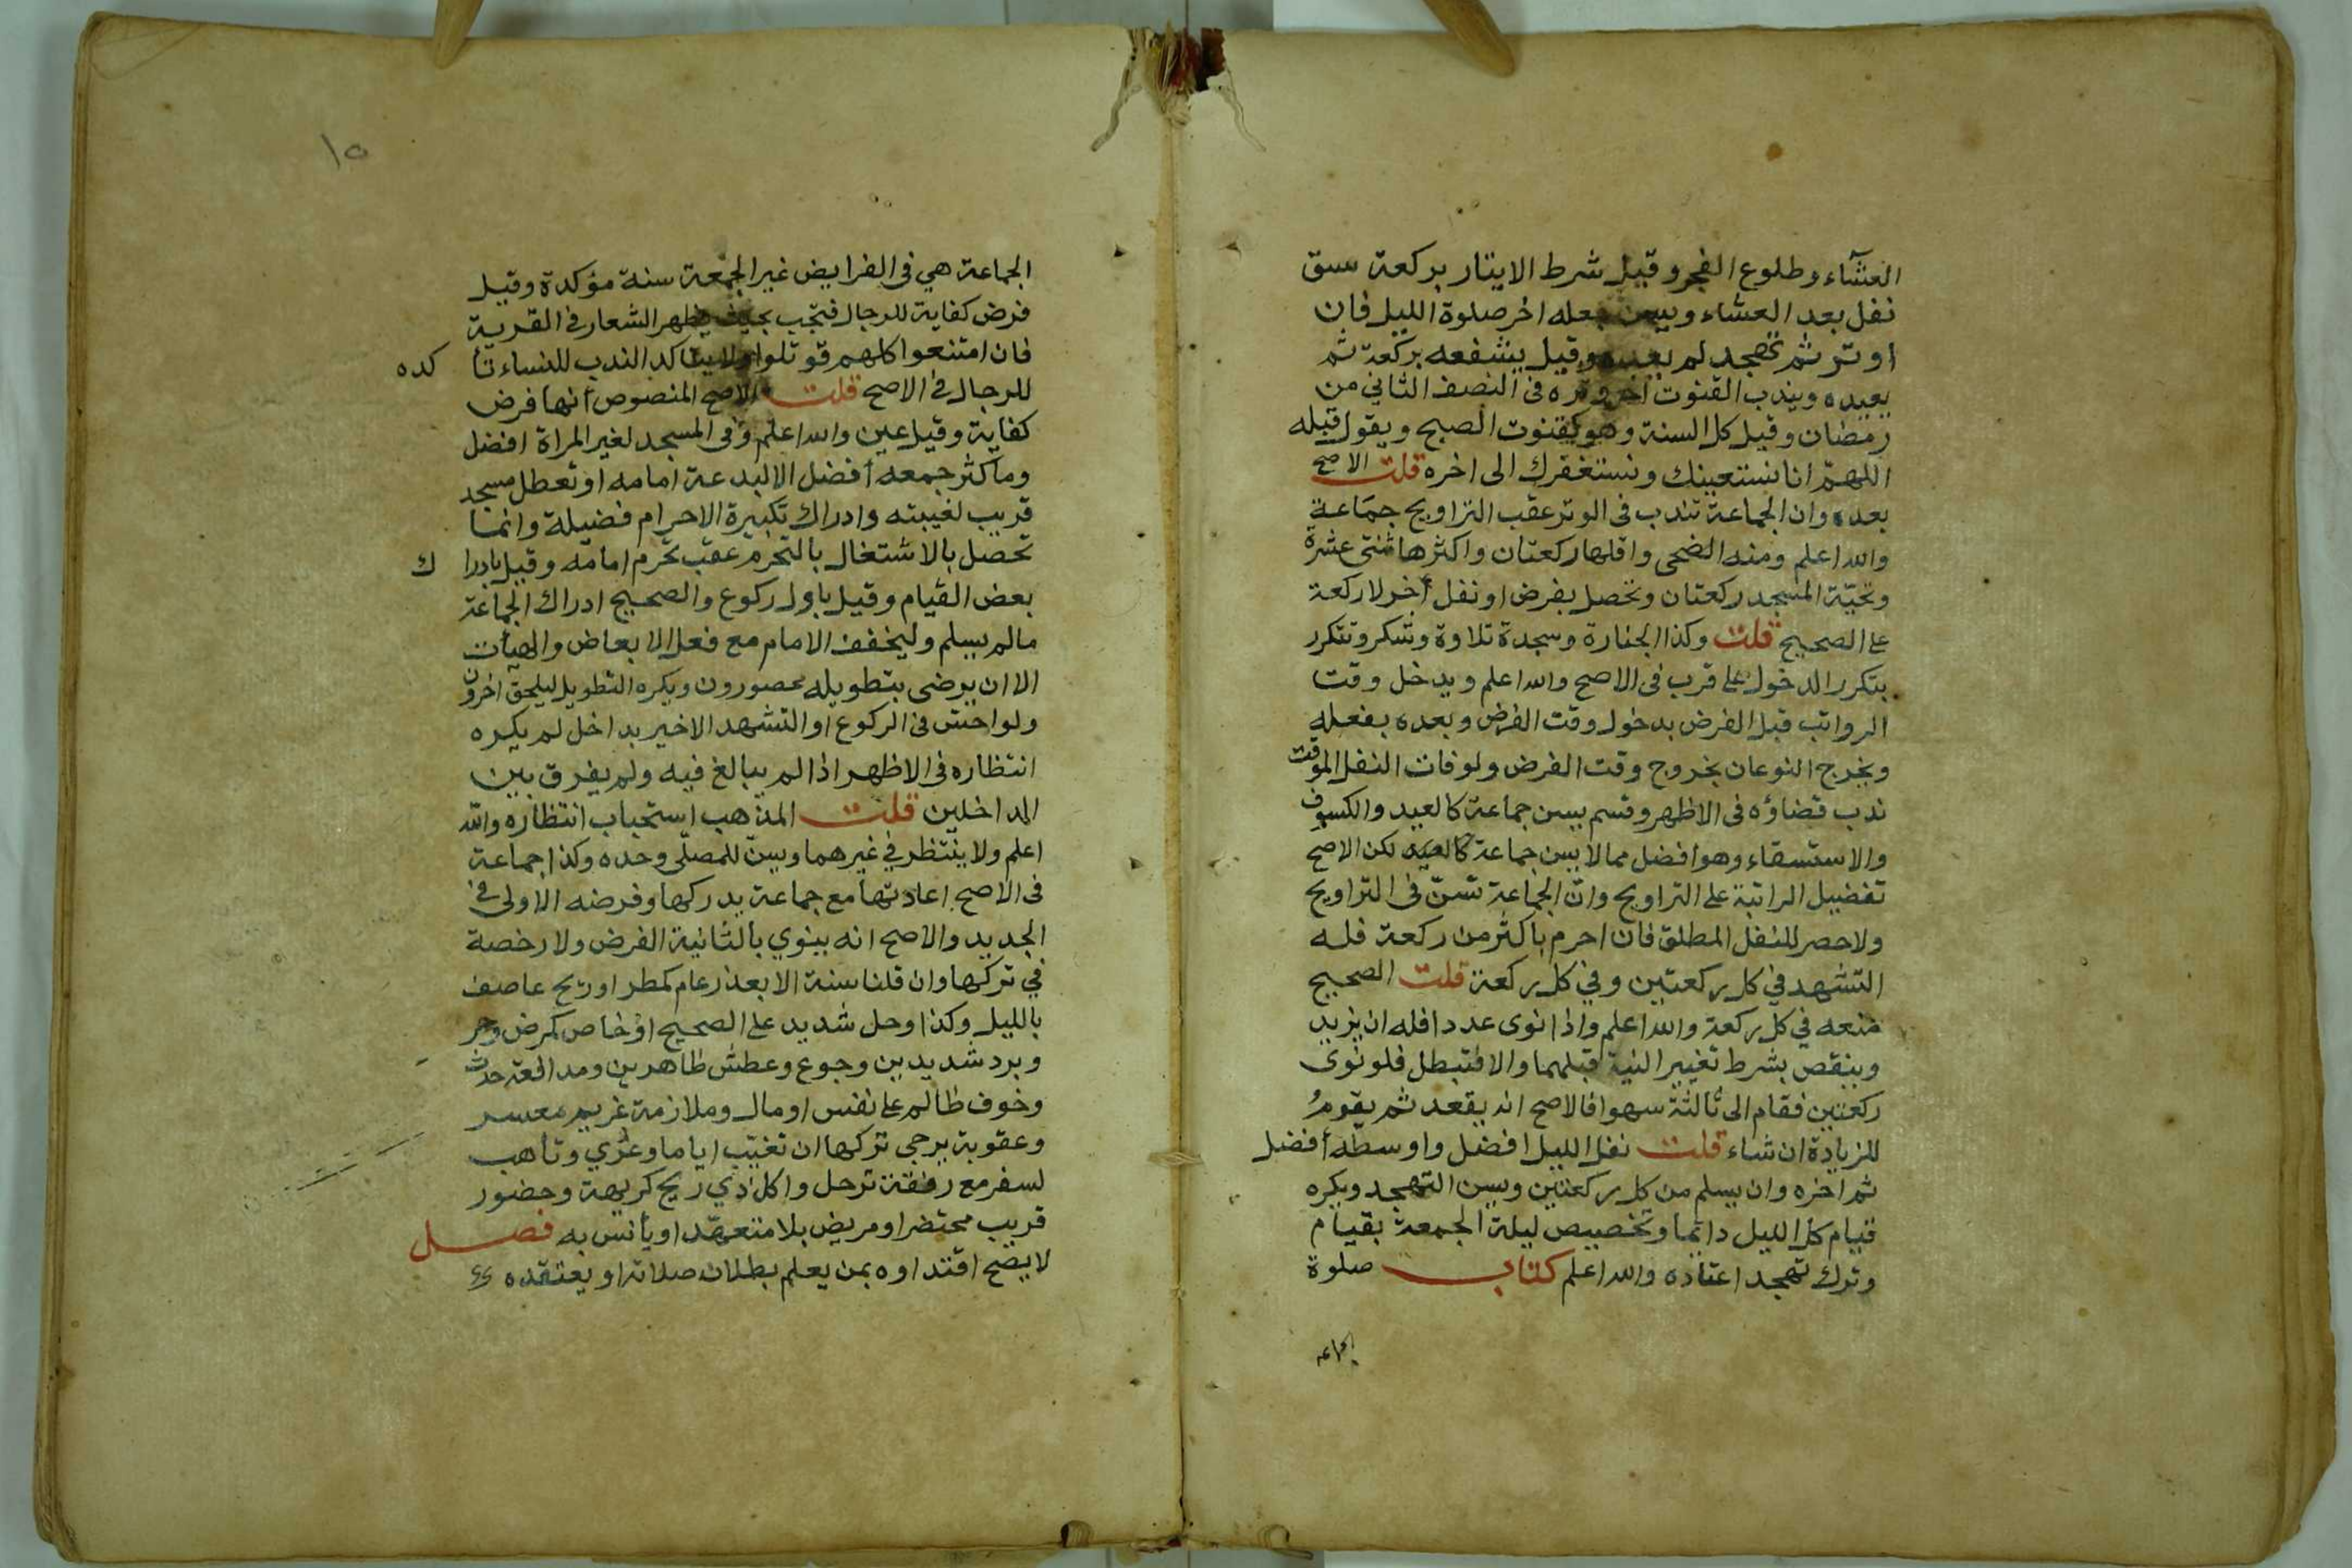 العشآء وطلوع الفجر وقيل شرط الايتار بركعة سبق
نفل بعد العشاء ويسن جعله اخر صلوة الليل فان
اوتر ثم تهجد لم يعده وقيل يشفعه بركعة ثم
يعيده ويندب القنوت اخر وتره فى النصف الثاني من
رمضان وقيل كل السنة وهو كقنوت الصبح ويقول قبله
اللهمّ انا نستعينك ونستغفرك الى اخره قلت الاصح
بعده وان الجماعة تندب فى الوتر عقب التراويح جمَاعة
والله اعلم ومنه الضحى واقلها ركعتان واكثرها ثنتى عشرة
وتحيّة المسجد ركعتان وتحصل بفرض او نفل أخر لا ركعة
على الصحيح قلت وكذا الجنازة وسجدة تلاوة وشكر وتتكرر
بتكرر الدخول على قرب فى الاصح والله اعلم ويدخل وقت
الرواتب قبل الفرض بدخول وقت الفرض وبعده بفعله
ويخرج النوعان بخروج وقت الفرض ولو فات النفل الموقت
ندب قضاؤه فى الاظهر وقسم يسن جماعة كالعيد والكسوف
والاستسقاء وهو افضل مما لا يسن جماعة كالعيد لكن الاصح
تفضيل الراتبة على التراويح وانّ الجماعة تسنّ فى التراويح
ولا حصر للنفل المطلق فان احرم باكثر من ركعة فله
التشهد في كل ركعتين وفي كل ركعة قلت الصحيح
منعه في كل ركعة والله اعلم واذا نوى عددا فله ان يزيد
وينقص بشرط تغيير النية قبلهما والا فتبطل فلو نوى
ركعتين فقام الى ثالثة سهوا فالاصح انه يقعد ثم يقومُ
للزيادة ان شاء قلت نفل الليل افضل واوسطه أفضل
ثم اخره وان يسلم من كل ركعتين ويسن التهجد ويكره
قيام كل الليل دائما وتخصيص ليلة الجمعة بقيام
وترك تهجد اعتاده والله اعلم كتاب صلوة
الجماعة
١٥
الجماعة هي فى الفرايض غير الجمعة سنة مؤكدة وقيل
فرض كفاية للرجال فتجب بحيث يظهر الشعار فى القرية
فان امتنعوا كلهم قوتلوا ولا يتاكد الندب للنساء تأ كده
للرجال فى الاصح قلت الاصح المنصوص أنها فرض
كفاية وقيل عين والله اعلم وفى المسجد لغير المراة افضل
وما كثر جمعه أفضل الا لبدعة امامه او تعطل مسجد
قريب لغيبته وادراك تكبيرة الاحرام فضيلة وانما
تحصل بالاشتغال بالتحرم عقب تحرم امامه وقيل بادرا ك
بعض القيام وقيل باول ركوع والصحيح ادراك الجماعة
مالم يسلم وليخفف الامام مع فعل الابعاض والهيأت
الا ان يرضى بتطويله محصورون ويكره التطويل ليلحق اخرون
ولو احس فى الركوع او التشهد الاخير بداخل لم يكره
انتظاره فى الاظهر اذا لم يبالغ فيه ولم يفرق بين
الداخلين قلت المذهب استحباب انتظاره والله
اعلم ولا ينتظر في غيرهما ويسنّ للمصلّى وحده وكذا جماعة
فى الاصح اعادتها مع جماعة يدركها وفرضه الاولى في
الجديد والاصح انه ينوي بالثانية الفرض ولا رخصة
في تركها وان قلنا سنة الا بعذر عام كمطر او ريح عاصف
بالليل وكذا وحل شديد على الصحيح او خاص كمرض وحر
وبرد شديدين وجوع وعطش ظاهرين ومدافعة حدث
وخوف ظالم على نفس او مال وملازمة غريم معسر
وعقوبة يرجى تركها ان تغيّب اياما وعُري وتأهب
لسفر مع رفقة ترحل واكل ذي ريح كريهة وحضور
قريب محتضر او مريض بلا متعهّد او يأنس به فصل
لا يصح اقتداوه بمن يعلم بطلان صلاته او يعتقده